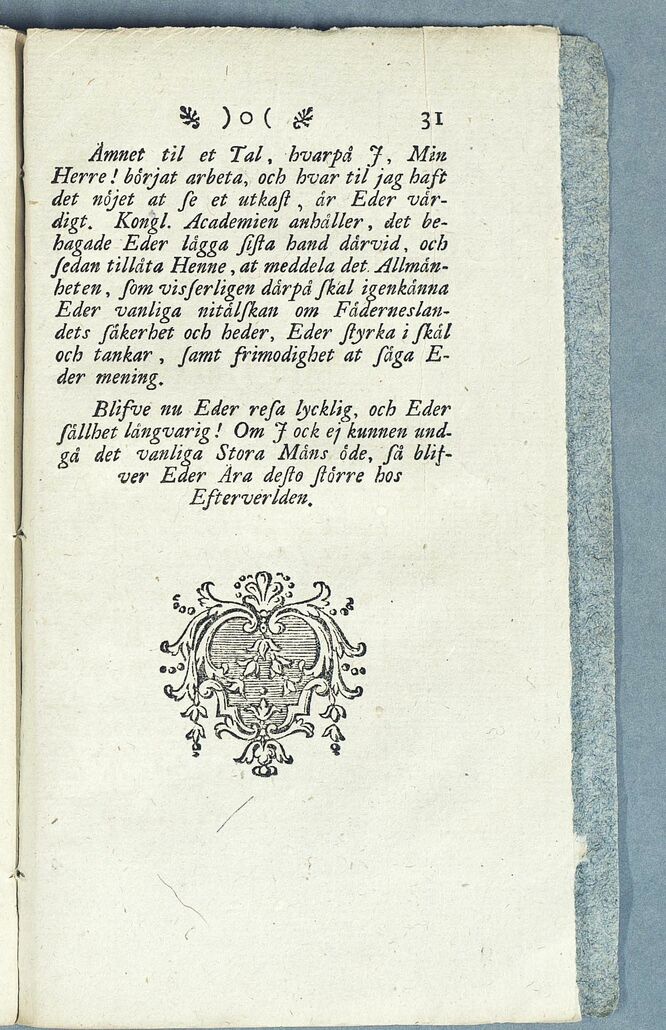 )o( 31
Åmnet til et Tal, hvarpå J, Min
Herre! börjat arbeta, och hvar til jag haft
det nöjet at ſe et utkaſt, år Eder vår-
digt. Kongl. Academien anhåller, det be-
hagade Eder lågga ſiſta hand dårvid, och
ſedan tillåta Henne, at meddela det Allmån-
heten, ſom visſerligen dårpå ſkal igenkånna
Eder vanliga nitålſkan om Fåderneslan-
dets ſåkerhet och heder, Eder ſtyrka i ſkål
och tankar, ſamt frimodighet at ſåga E-
der mening.
Blifve nu Eder reſa lycklig, och Eder
ſållhet långvarig! Om J ock ej kunnen und-
gå det vanliga Stora Måns öde, ſå blif-
ver Eder Åra deſto ſtörre hos
Efterverlden.